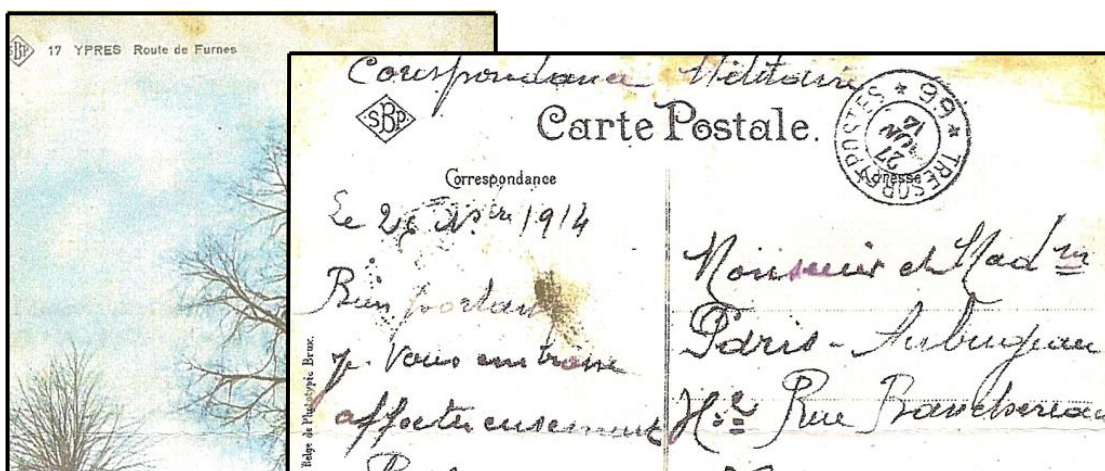 SBP 17 YPRES Route de Furnes
Correspondance Militaire
SBP
Carte Postale.
TRESOR ET POSTES * 99 *
27
14
Correspondance
Adresse
Le 26 9bre 1914
Bien portant
je vous embrasse
affectueusement
Monsieur et Madme
Paris-
Rue
Belge de Phototypie Brux.